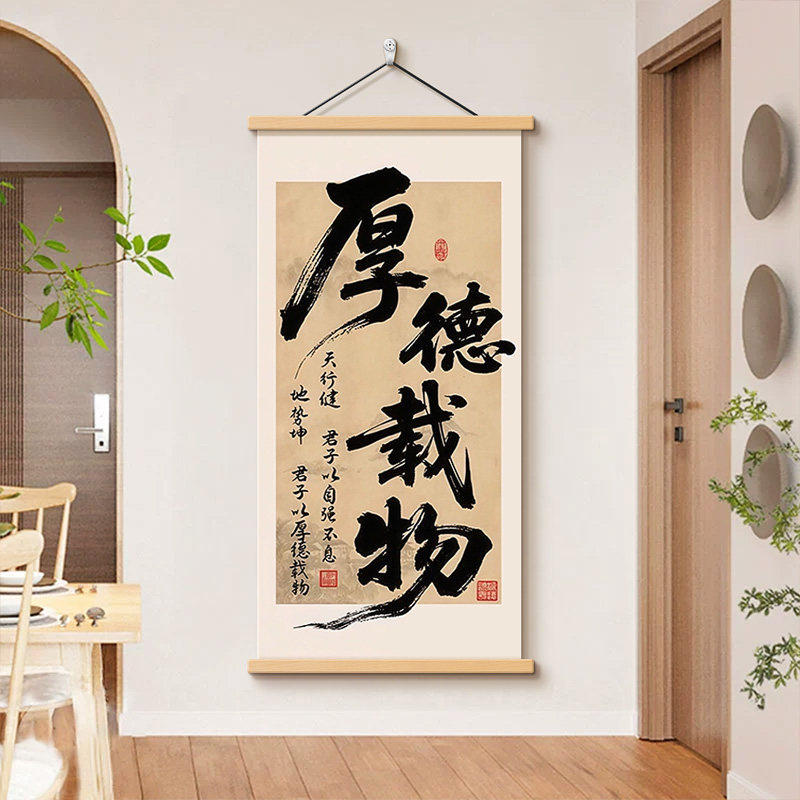 厚德载物
天行健 君子以自强不息
地势坤 君子以厚德载物